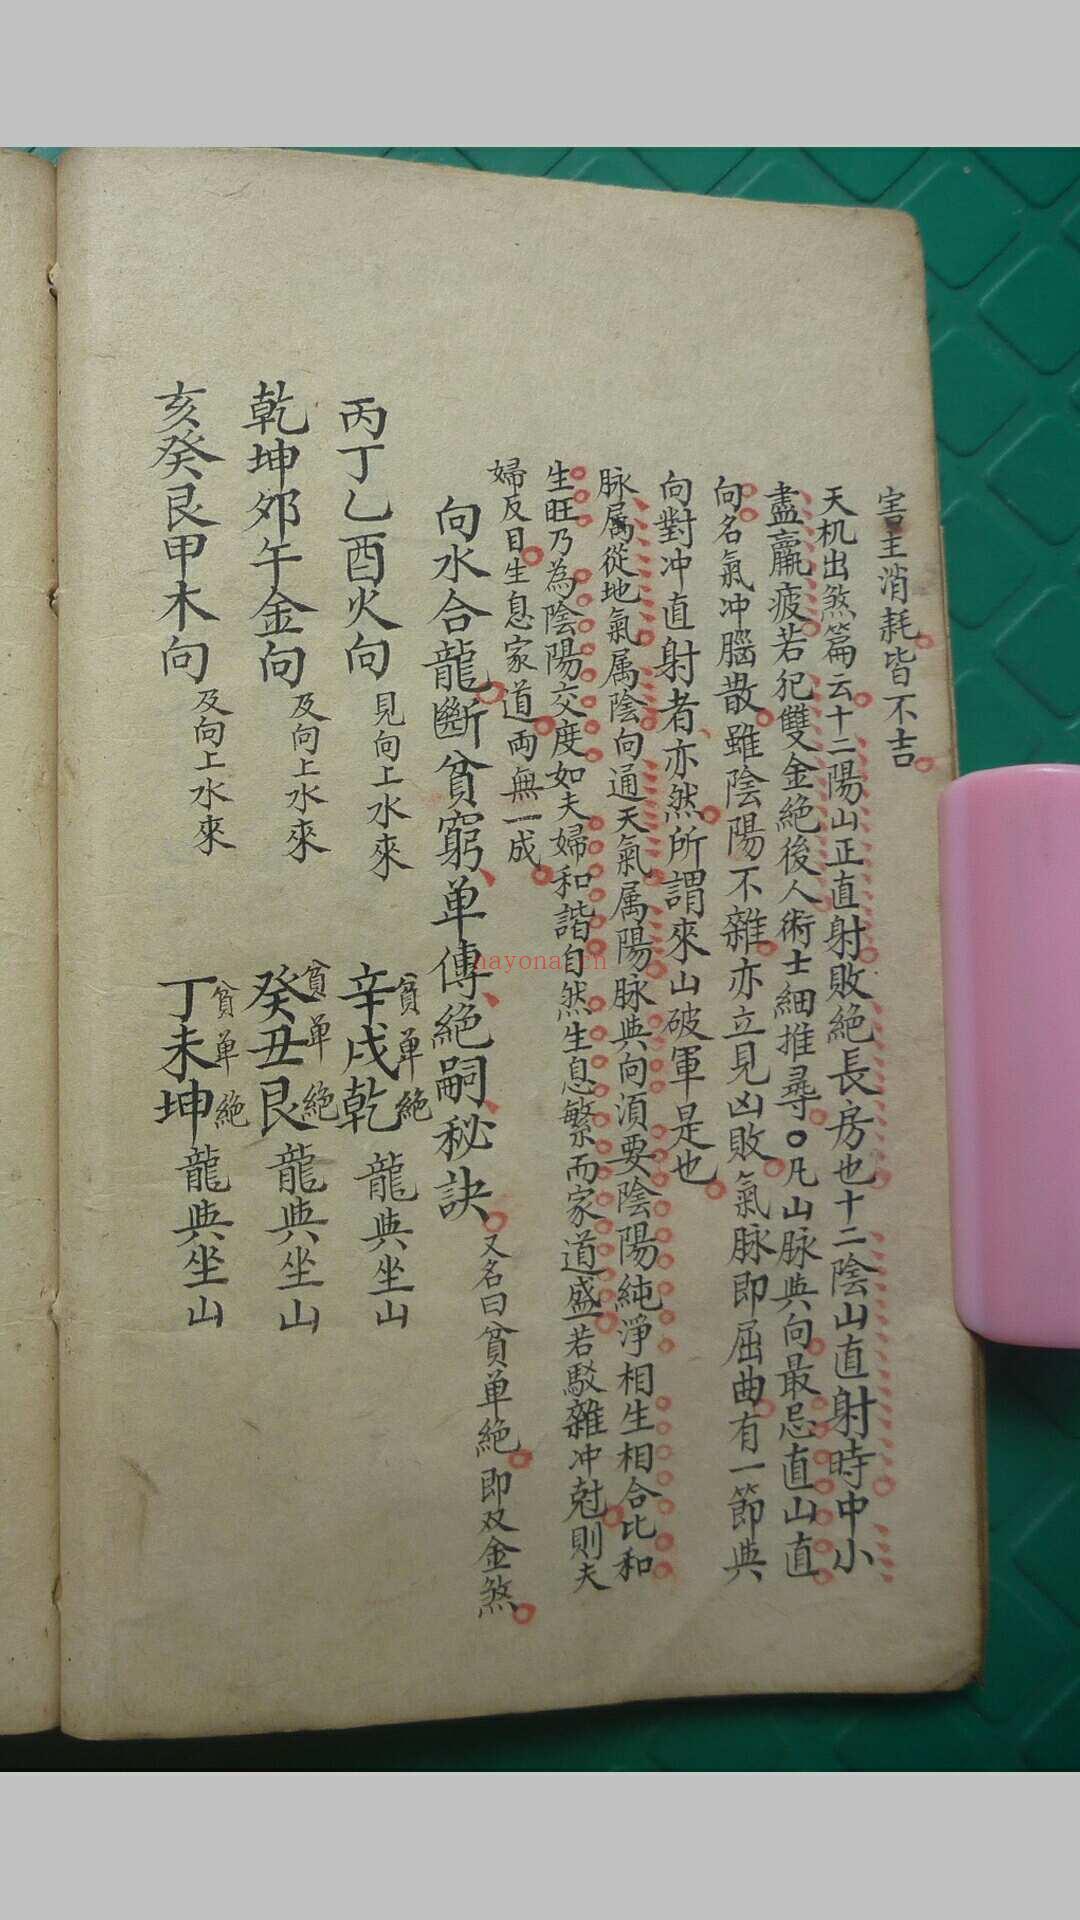 害主消耗皆不吉
天机出煞篇云十二陽山正直射敗絕長房也十二陰山直射時中小
盡羸疲若犯雙金絕後人術士細推尋○凡山脉與向最忌直山直
向名氣冲腦散雖陰陽不雜亦立見凶敗氣脉即屈曲有一節與
向對冲直射者亦然所謂來山破軍是也
脉属從地氣属陰向通天氣属陽脉與向須要陰陽純淨相生相合比和
生旺乃為陰陽交度如夫婦和諧自然生息繁而家道盛若駁雜冲尅則夫
婦反目生息家道両無一成
向水合龍斷貧窮单傳絕嗣秘訣 又名曰貧单絕即双金煞
丙丁乙酉火向 見向上水來 辛戌乾 貧单絕 龍與坐山
乾坤夘午金向 及向上水來 癸丑艮 貧单絕 龍與坐山
亥癸艮甲木向 及向上水來 丁未坤 貧单絕 龍與坐山
nayona.cn